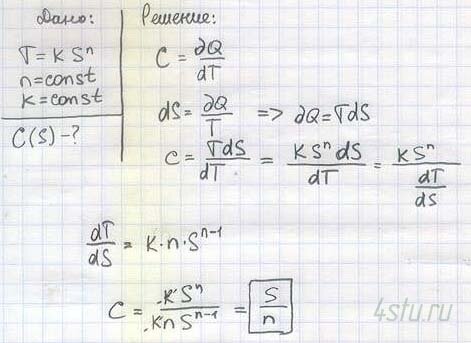 Дано:
T = K Sⁿ
n = const
K = const
C(S) - ?
Решение:
C = ∂Q/dT
dS = ∂Q/T => ∂Q = TdS
C = TdS/dT = K Sⁿ dS/dT = K Sⁿ/(dT/dS)
dT/dS = K·n·Sⁿ⁻¹
C = K Sⁿ/K n Sⁿ⁻¹ = S/n
4stu.ru